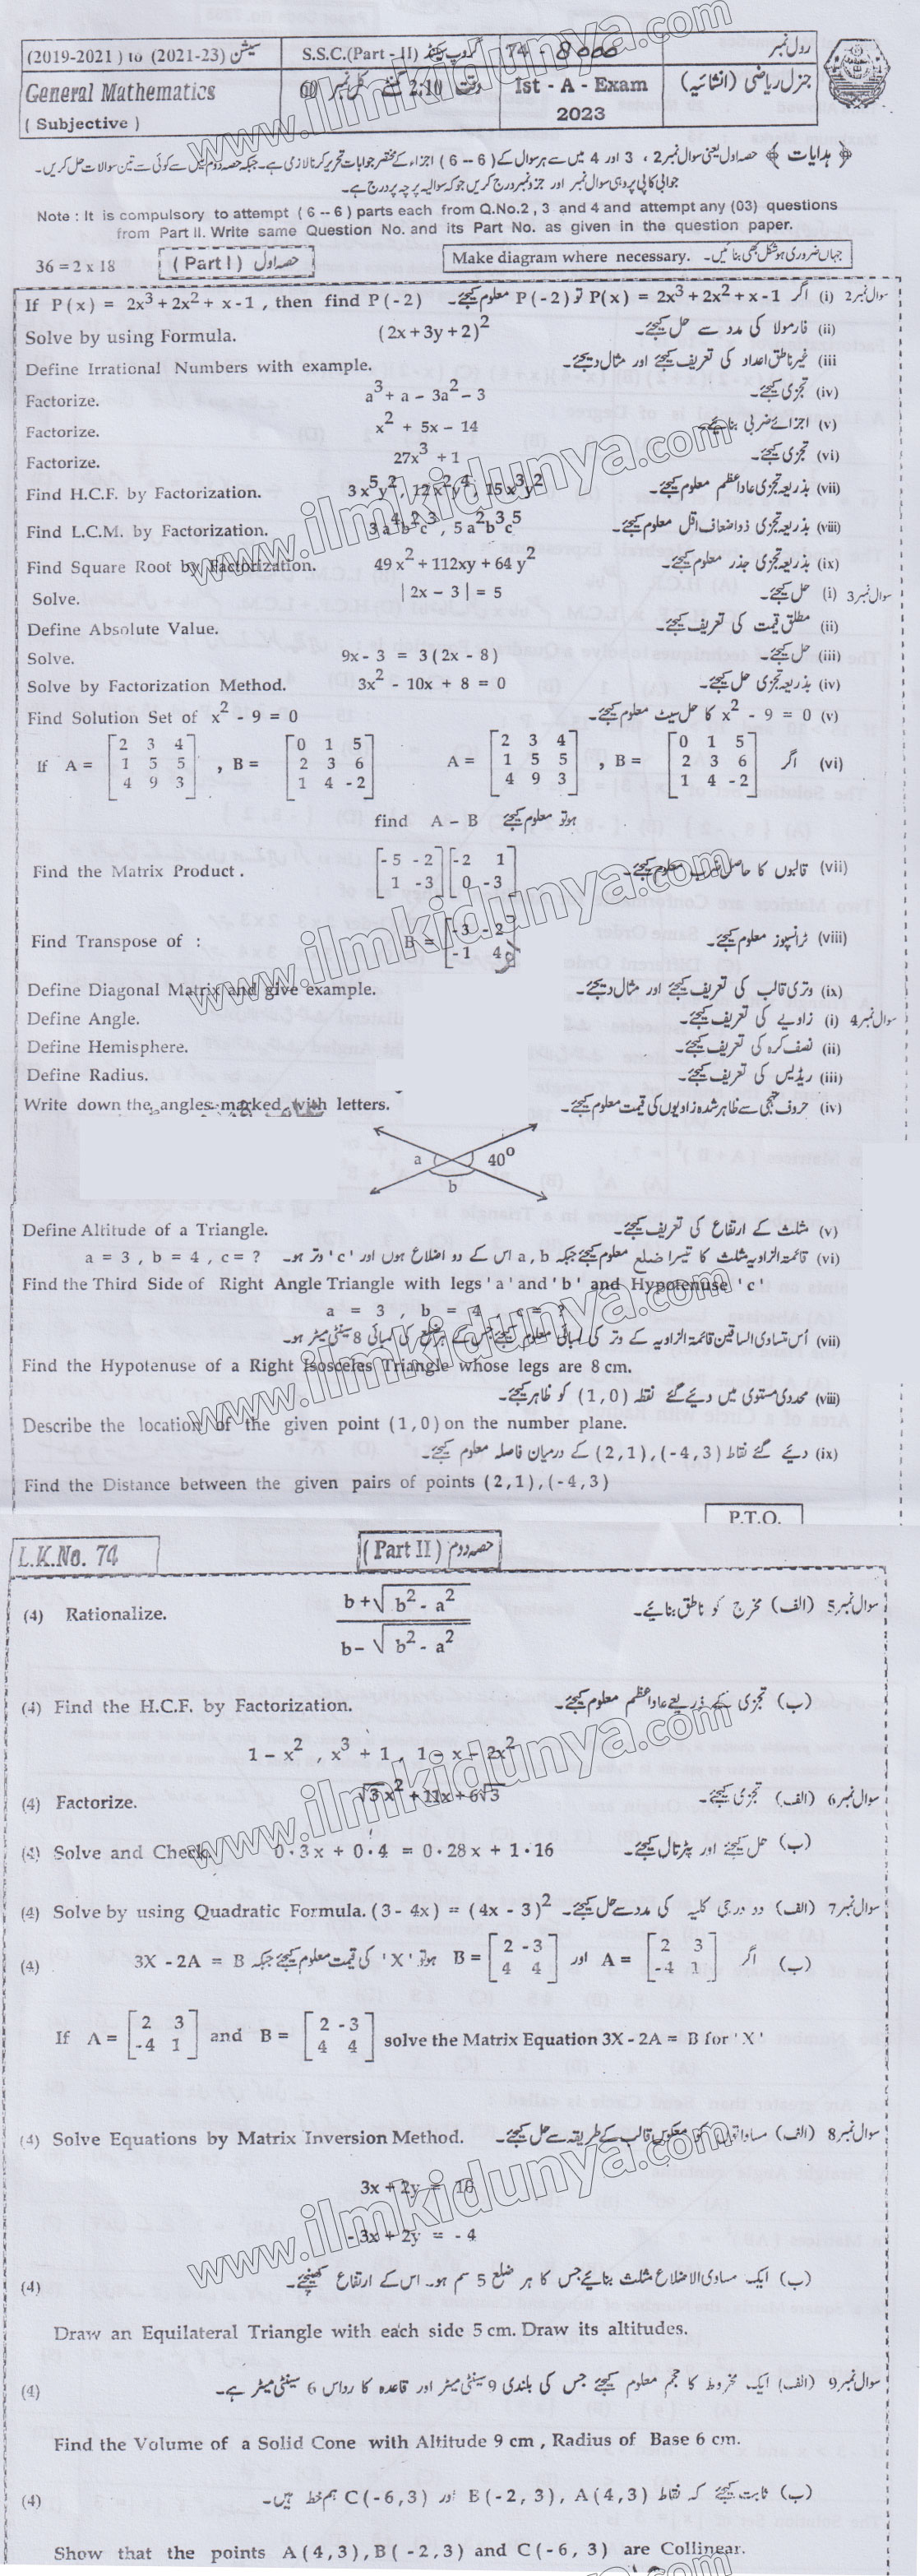 (2019-2021) to (2021-23) سیشن S.S.C.(Part - II) گروپ سیکنڈ 74 - 8000 رول نمبر
General Mathematics وقت 2:10 گھنٹے کل نمبر 60 Ist - A - Exam جنرل ریاضی (انشائیہ)
( Subjective ) 2023
﴿ ہدایات ﴾ حصہ اول یعنی سوال نمبر 2 ، 3 اور 4 میں سے ہر سوال کے (6 -- 6) اجزاء کے مختصر جوابات تحریر کرنا لازمی ہے۔ جبکہ حصہ دوم میں سے کوئی سے تین سوالات حل کریں۔
جوابی کاپی پر وہی سوال نمبر اور جزو نمبر درج کریں جو کہ سوالیہ پرچہ پر درج ہے۔
Note : It is compulsory to attempt (6 -- 6) parts each from Q.No.2 , 3 and 4 and attempt any (03) questions
from Part II. Write same Question No. and its Part No. as given in the question paper.
36 = 2 x 18 (Part I) حصہ اول Make diagram where necessary. جہاں ضروری ہو شکل بھی بنائیں۔
If P(x) = 2x³+2x²+ x-1 , then find P(-2) سوال نمبر 2 (i) اگر P(x) = 2x³+2x²+x-1 تو P(-2) معلوم کیجئے۔
Solve by using Formula. (2x+3y+2)² (ii) فارمولا کی مدد سے حل کیجئے۔
Define Irrational Numbers with example. (iii) غیر ناطق اعداد کی تعریف کیجئے اور مثال دیجئے۔
Factorize. a³+ a - 3a² - 3 (iv) تجزی کیجئے۔
Factorize. x² + 5x - 14 (v) اجزائے ضربی بنائیے۔
Factorize. 27x³ +1 (vi) تجزی کیجئے۔
Find H.C.F. by Factorization. 3x⁵y², 12x²y⁴, 15x³y² (vii) بذریعہ تجزی عاد اعظم معلوم کیجئے۔
Find L.C.M. by Factorization. 3a⁴b²c³ , 5a²b³c⁵ (viii) بذریعہ تجزی ذواضعاف اقل معلوم کیجئے۔
Find Square Root by Factorization. 49x²+112xy+64y² (ix) بذریعہ تجزی جذر معلوم کیجئے۔
Solve. | 2x - 3 | = 5 سوال نمبر 3 (i) حل کیجئے۔
Define Absolute Value. (ii) مطلق قیمت کی تعریف کیجئے۔
Solve. 9x - 3 = 3(2x - 8) (iii) حل کیجئے۔
Solve by Factorization Method. 3x² - 10x + 8 = 0 (iv) بذریعہ تجزی حل کیجئے۔
Find Solution Set of x² - 9 = 0 (v) x² - 9 = 0 کا حل سیٹ معلوم کیجئے۔
2 3 4 0 1 5 2 3 4 0 1 5
If A = 1 5 5 , B = 2 3 6 A = 1 5 5 , B = 2 3 6 اگر (vi)
4 9 3 1 4 -2 4 9 3 1 4 -2
find A - B ہو تو معلوم کیجئے
-5 -2 -2 1
Find the Matrix Product. (vii) قالبوں کا حاصل ضرب معلوم کیجئے۔
1 -3 0 -3
-3 -2
Find Transpose of : B = (viii) ٹرانسپوز معلوم کیجئے۔
-1 4
Define Diagonal Matrix and give example. (ix) وتری قالب کی تعریف کیجئے اور مثال دیجئے۔
Define Angle. سوال نمبر 4 (i) زاویے کی تعریف کیجئے۔
Define Hemisphere. (ii) نصف کرہ کی تعریف کیجئے۔
Define Radius. (iii) ریڈیس کی تعریف کیجئے۔
Write down the angles marked with letters. (iv) حروف تہجی سے ظاہر شدہ زاویوں کی قیمت معلوم کیجئے۔
a 40°
b
Define Altitude of a Triangle. (v) مثلث کے ارتفاع کی تعریف کیجئے۔
a = 3 , b = 4 , c = ? (vi) قائمۃ الزاویہ مثلث کا تیسرا ضلع معلوم کیجئے جبکہ a , b اس کے دو اضلاع ہوں اور 'c' وتر ہو۔
Find the Third Side of Right Angle Triangle with legs 'a' and 'b' and Hypotenuse 'c'
a = 3 , b = 4 , c = ?
(vii) اُس تساوی الساقین قائمۃ الزاویہ کے وتر کی لمبائی معلوم کیجئے جس کے ہر ضلع کی لمبائی 8 سینٹی میٹر ہو۔
Find the Hypotenuse of a Right Isosceles Triangle whose legs are 8 cm.
(viii) محددی مستوی میں دیئے گئے نقطہ (1,0) کو ظاہر کیجئے۔
Describe the location of the given point (1,0) on the number plane.
(ix) دیئے گئے نقاط (2,1) , (-4,3) کے درمیان فاصلہ معلوم کیجئے۔
Find the Distance between the given pairs of points (2,1) , (-4,3)
P.T.O.
L.K.No. 74 (Part II) حصہ دوم
b+√b² - a²
(4) Rationalize. سوال نمبر 5 (الف) مخرج کو ناطق بنائیے۔
b-√b² - a²
(4) Find the H.C.F. by Factorization. (ب) تجزی کے ذریعے عاد اعظم معلوم کیجئے۔
1 - x² , x³ + 1 , 1 - x - 2x²
(4) Factorize. √3x²+11x+6√3 سوال نمبر 6 (الف) تجزی کیجئے۔
(4) Solve and Check. 0·3x + 0·4 = 0·28x + 1·16 (ب) حل کیجئے اور پڑتال کیجئے۔
(4) Solve by using Quadratic Formula. (3 - 4x) = (4x - 3)² سوال نمبر 7 (الف) دو درجی کلیہ کی مدد سے حل کیجئے۔
2 -3 2 3
(4) 3X - 2A = B ہو تو 'X' کی قیمت معلوم کیجئے جبکہ B = اور A = اگر (ب)
4 4 -4 1
2 3 2 -3
If A = and B = solve the Matrix Equation 3X - 2A = B for 'X'
-4 1 4 4
(4) Solve Equations by Matrix Inversion Method. سوال نمبر 8 (الف) مساواتوں کو معکوس قالب کے طریقہ سے حل کیجئے۔
3x + 2y = 16
-3x + 2y = - 4
(4) (ب) ایک مساوی الاضلاع مثلث بنائیے جس کا ہر ضلع 5 سم ہو۔ اس کے ارتفاع کھینچئے۔
Draw an Equilateral Triangle with each side 5 cm. Draw its altitudes.
(4) سوال نمبر 9 (الف) ایک مخروط کا حجم معلوم کیجئے جس کی بلندی 9 سینٹی میٹر اور قاعدہ کا رداس 6 سینٹی میٹر ہے۔
Find the Volume of a Solid Cone with Altitude 9 cm , Radius of Base 6 cm.
(4) (ب) ثابت کیجئے کہ نقاط A(4,3) , B(-2,3) اور C(-6,3) ہم خط ہیں۔
Show that the points A(4,3) , B(-2,3) and C(-6, 3) are Collinear.
www.ilmkidunya.com
www.ilmkidunya.com
www.ilmkidunya.com
www.ilmkidunya.com
www.ilmkidunya.com
www.ilmkidunya.com